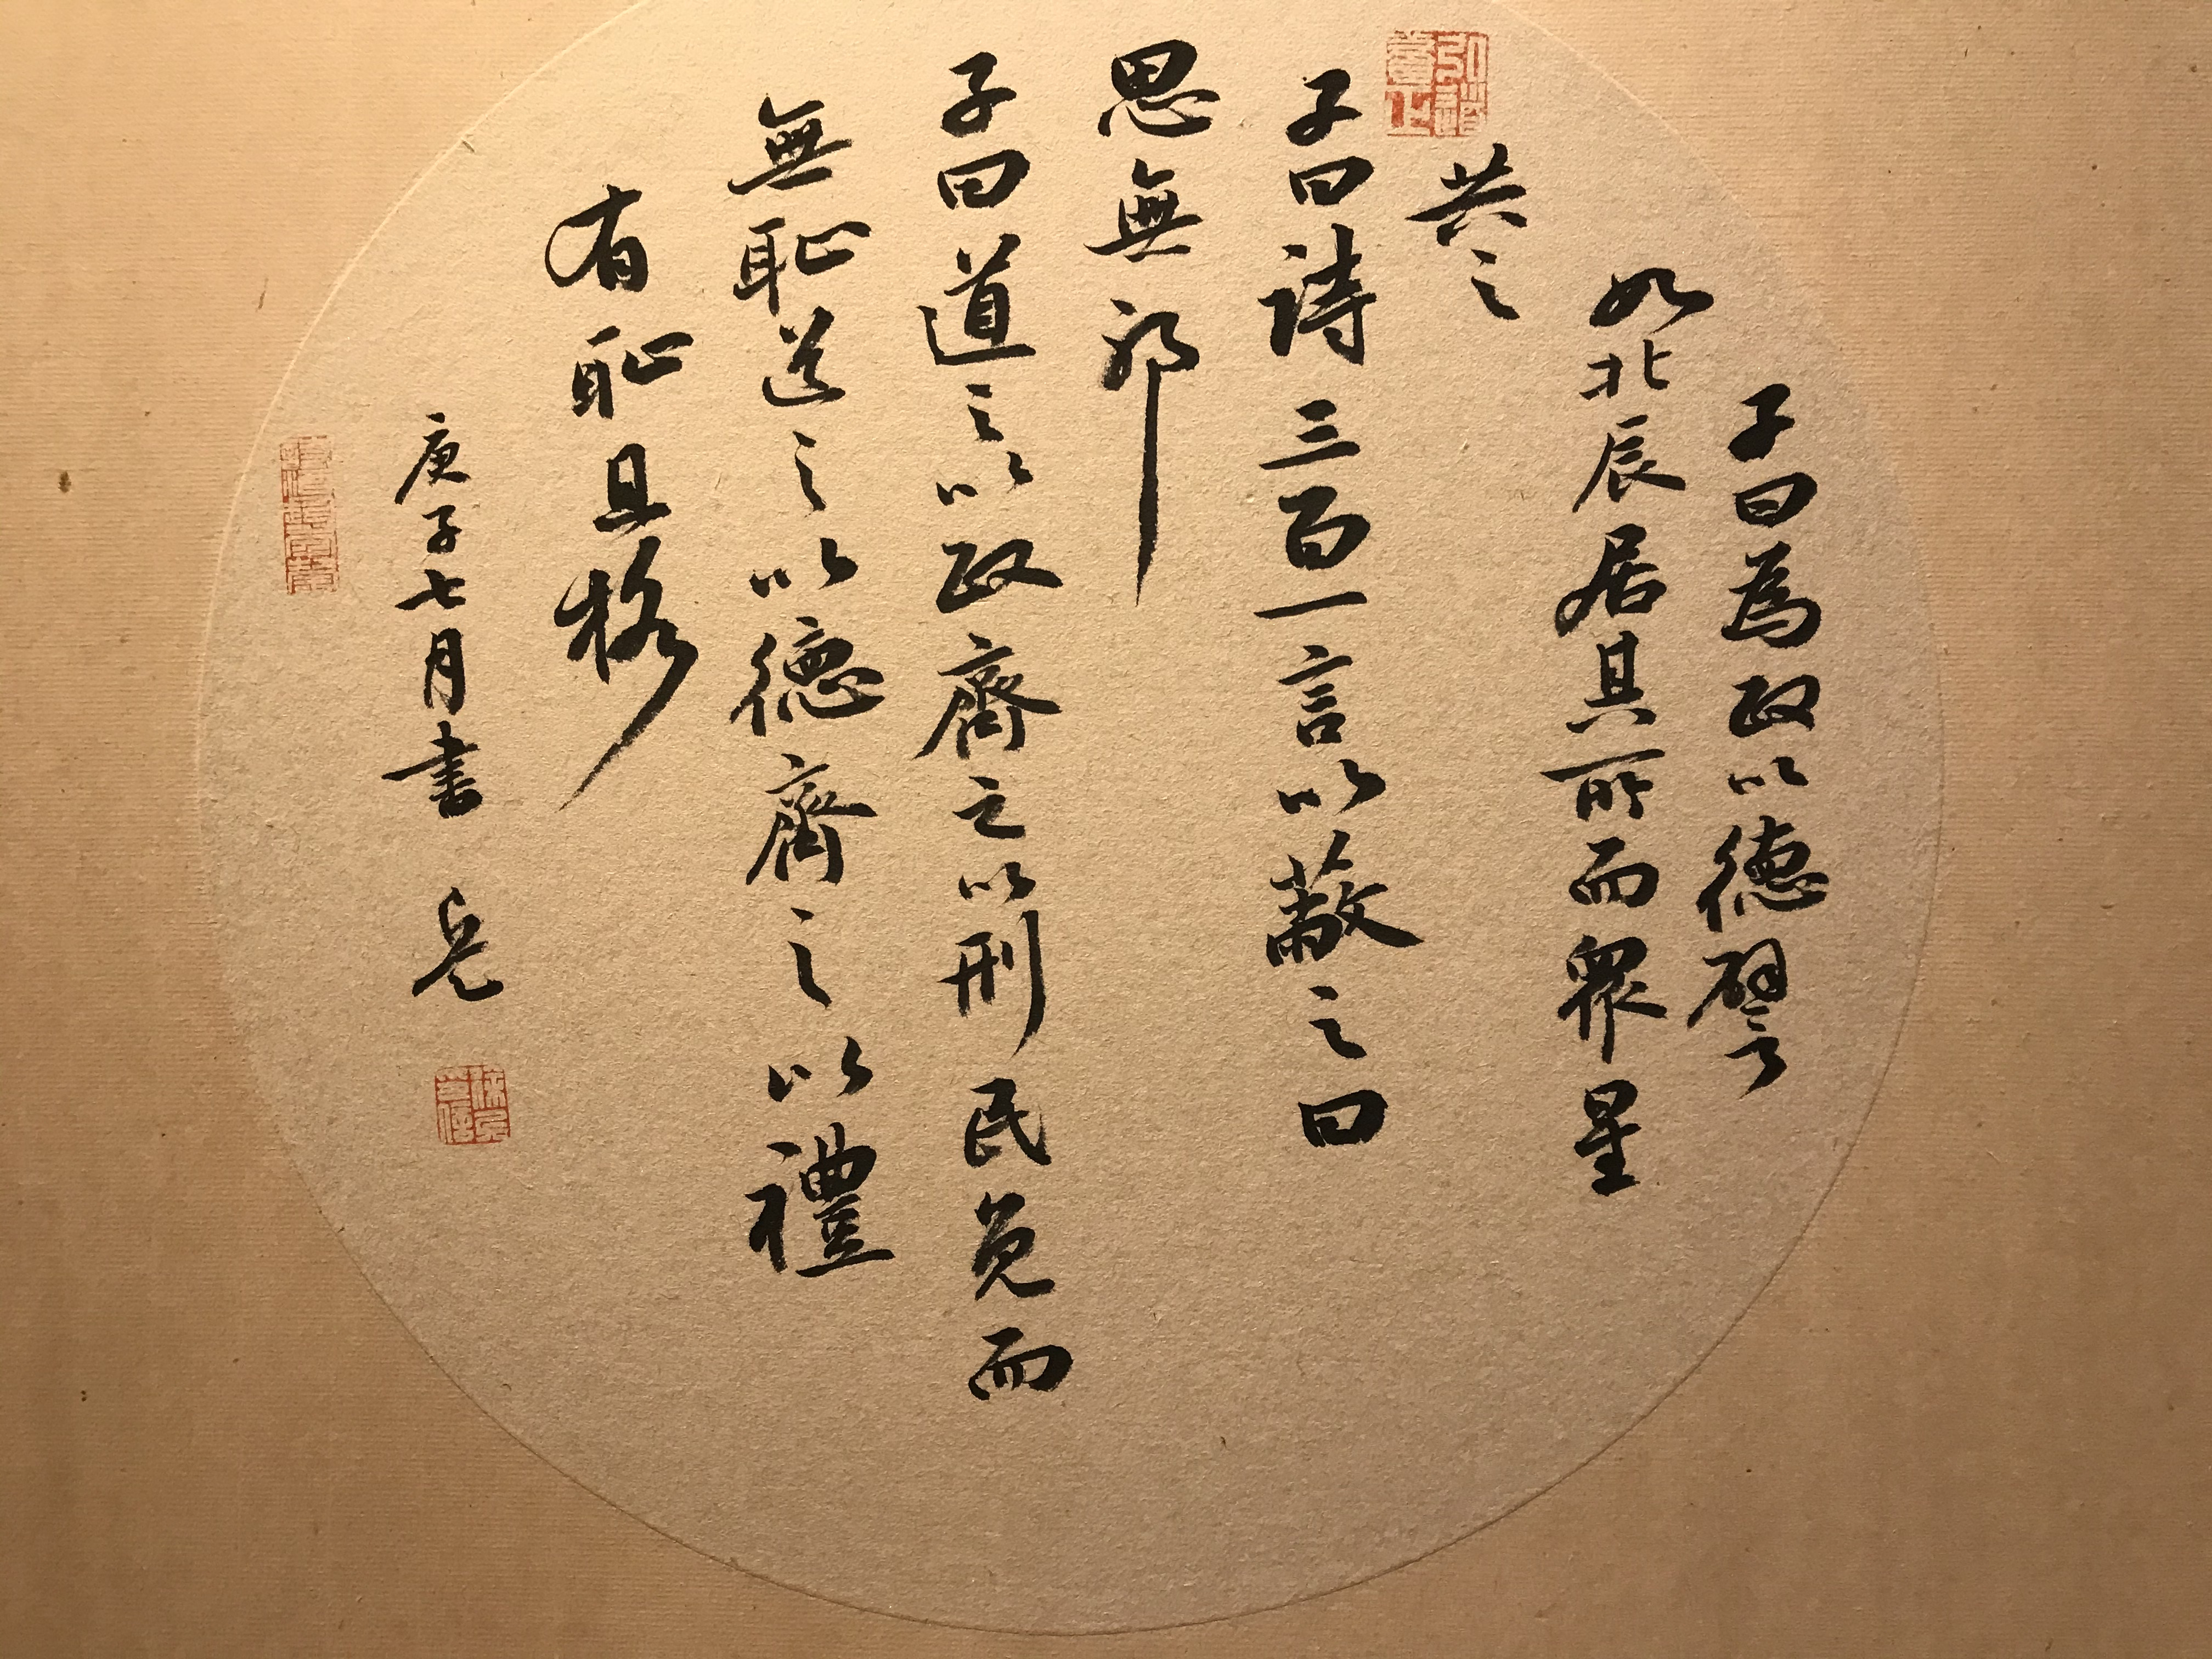 子曰為政以德譬
如北辰居其所而眾星
共之
子曰詩三百一言以蔽之曰
思無邪
子曰道之以政齊之以刑民免而
無恥道之以德齊之以禮
有恥且格
庚子七月書